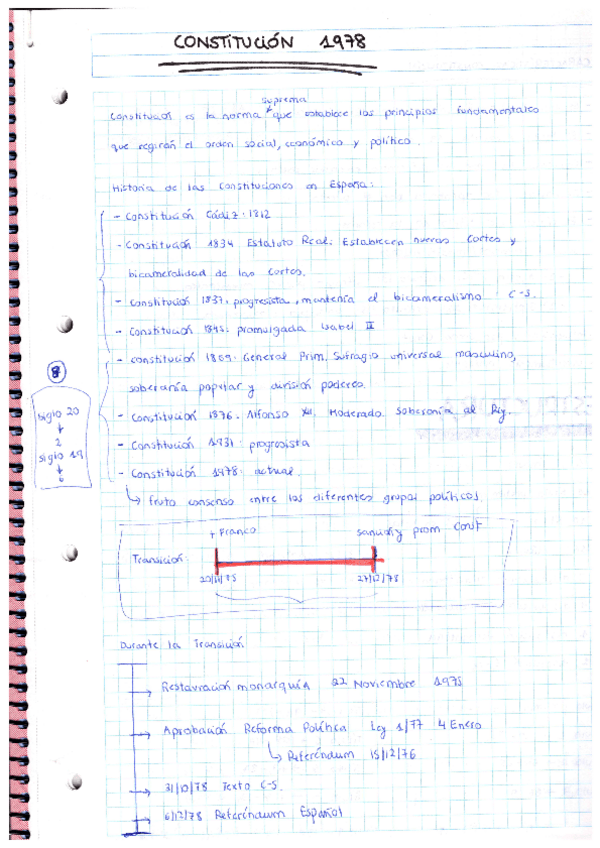 CONSTITUCIÓN 1978
suprema
Constitución es la norma que establece los principios fundamentales
que regirán el orden social, económico y político.
Historia de las Constituciones en España:
- Constitución Cádiz: 1812
- Constitución 1834 Estatuto Real: Establecen nuevas Cortes y
bicameralidad de las Cortes.
- Constitución 1837: progresista, mantenía el bicameralismo C-S.
- Constitución 1845: promulgada Isabel II
- Constitución 1869: General Prim. Sufragio universal masculino,
soberanía popular y división poderes.
8
- Constitución 1876. Alfonso XII. Moderado. Soberanía al Rey.
- Constitución 1931: progresista
- Constitución 1978: actual.
siglo 20
2
siglo 19
6
↳ fruto consenso entre los diferentes grupos políticos.
+ Franco
prom Const
Transición:
20/11/75
27/12/78
Durante la Transición
→ Restauración monarquía 22 Noviembre 1975
→ Aprobación Reforma Política Ley 1/77 4 Enero
↳ Referéndum 15/12/76
→ 31/10/78 Texto C-S.
→ 6/12/78 Referéndum Español